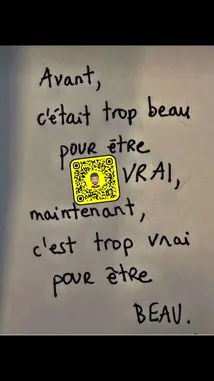 Avant,
c'était trop beau
pour être
VRAI,
maintenant,
c'est trop vrai
pour être
BEAU.